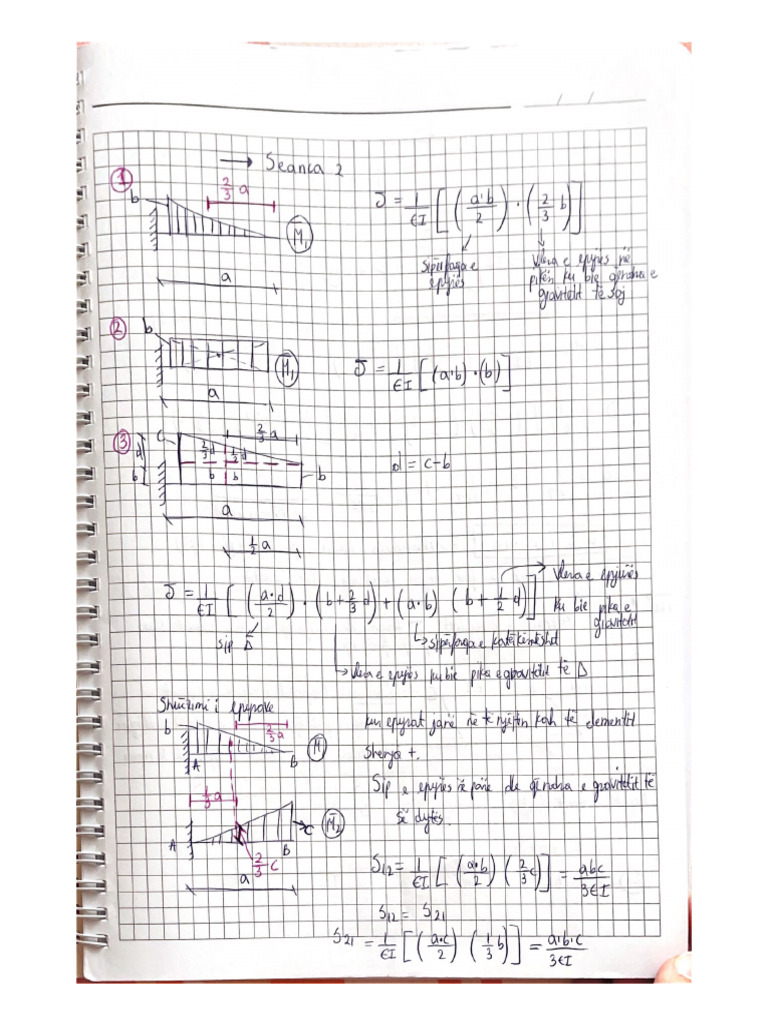 → Seanca 2
①
2/3 a
b
M̄₁
a
δ = 1/EI [ (a·b/2) · (2/3 b) ]
Sipërfaqja e epyrës
Vlera e epyrës në pikën ku bie qendra e gravitetit të saj
②
b
M̄₁
a
δ = 1/EI [ (a·b) · (b) ]
③
c
2/3 a
d
2/3 d
1/3 d
b
b
b
b
a
1/2 a
d = c-b
δ = 1/EI [ (a·d/2) · (b + 2/3 d) + (a·b) (b + 1/2 d) ]
Vlera e epyrës ku bie pika e gravitetit
sip Δ
sipërfaqja e katërkëndëshit
Vlera e epyrës ku bie pika e gravitetit të Δ
Shumëzimi i epyrave
b
2/3 a
A
B
M̄
1/3 a
A
B
c
M̄₂
2/3 c
a
kur epyrat janë në të njëjtën kah të elementit
Shenja +.
Sip e epyrës së parë dhe qendra e gravitetit të
së dytës.
S₁₂ = 1/EI [ (a·b/2) (2/3 c) ] = abc/3EI
S₁₂ = S₂₁
S₂₁ = 1/EI [ (a·c/2) (1/3 b) ] = a·b·c/3EI